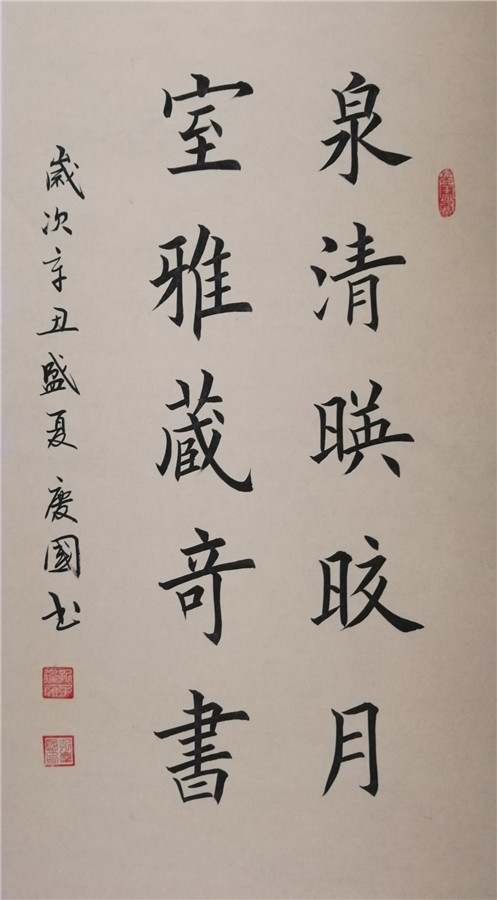 泉清暎晈月
室雅蔵奇書
歲次辛丑盛夏 慶國书